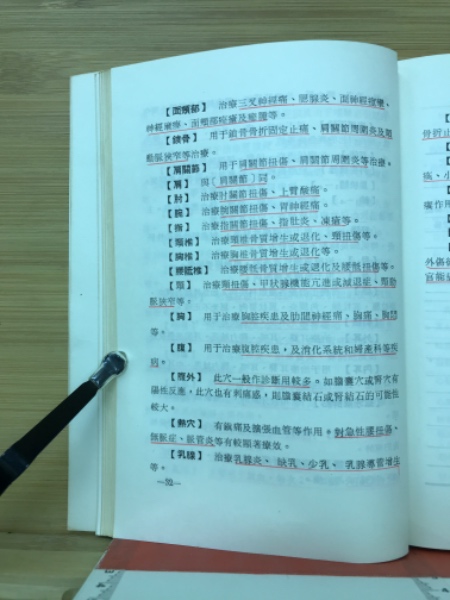 【面頰部】 治療三叉神經痛、腮腺炎、面神經痙攣、
神經麻痹、面頰部痤瘡及癤腫等。
【鎖骨】 用于鎖骨骨折固定止痛、肩關節周圍炎及頸
動脈狹窄等治療。
【肩關節】 用于肩關節扭傷、肩關節周圍炎等治療。
【肩】 與〔肩關節〕同。
【肘】 治療肘關節扭傷、上臂酸痛。
【腕】 治療腕關節扭傷、胃神經痛。
【指】 治療指關節扭傷、指肚炎、凍瘡等。
【頸椎】 治療頸椎骨質增生或退化、頸扭傷等。
【胸椎】 治療胸椎骨質增生或退化等。
【腰骶椎】 治療腰骶骨質增生或退化及腰骶扭傷等。
【頸】 治療頸扭傷、甲狀腺機能亢進或減退症、頸動
脈狹窄等。
【胸】 用于治療胸腔疾患及肋間神經痛、胸痛、胸悶
等。
【腹】 用于治療腹腔疾患，及消化系統和婦產科等疾
病。
【腹外】 此穴一般作診斷用較多。如膽囊穴或腎穴有
陽性反應，此穴也有刺痛感，則膽囊結石或腎結石的可能性
較大。
【熱穴】 有鎮痛及擴張血管等作用。對急性腰扭傷、
無脈症、脈管炎等有較顯著療效。
【乳腺】 治療乳腺炎、缺乳、少乳、乳腺導管增生
等。
—32—
骨折止
痛、小
廣作用
外傷
官能